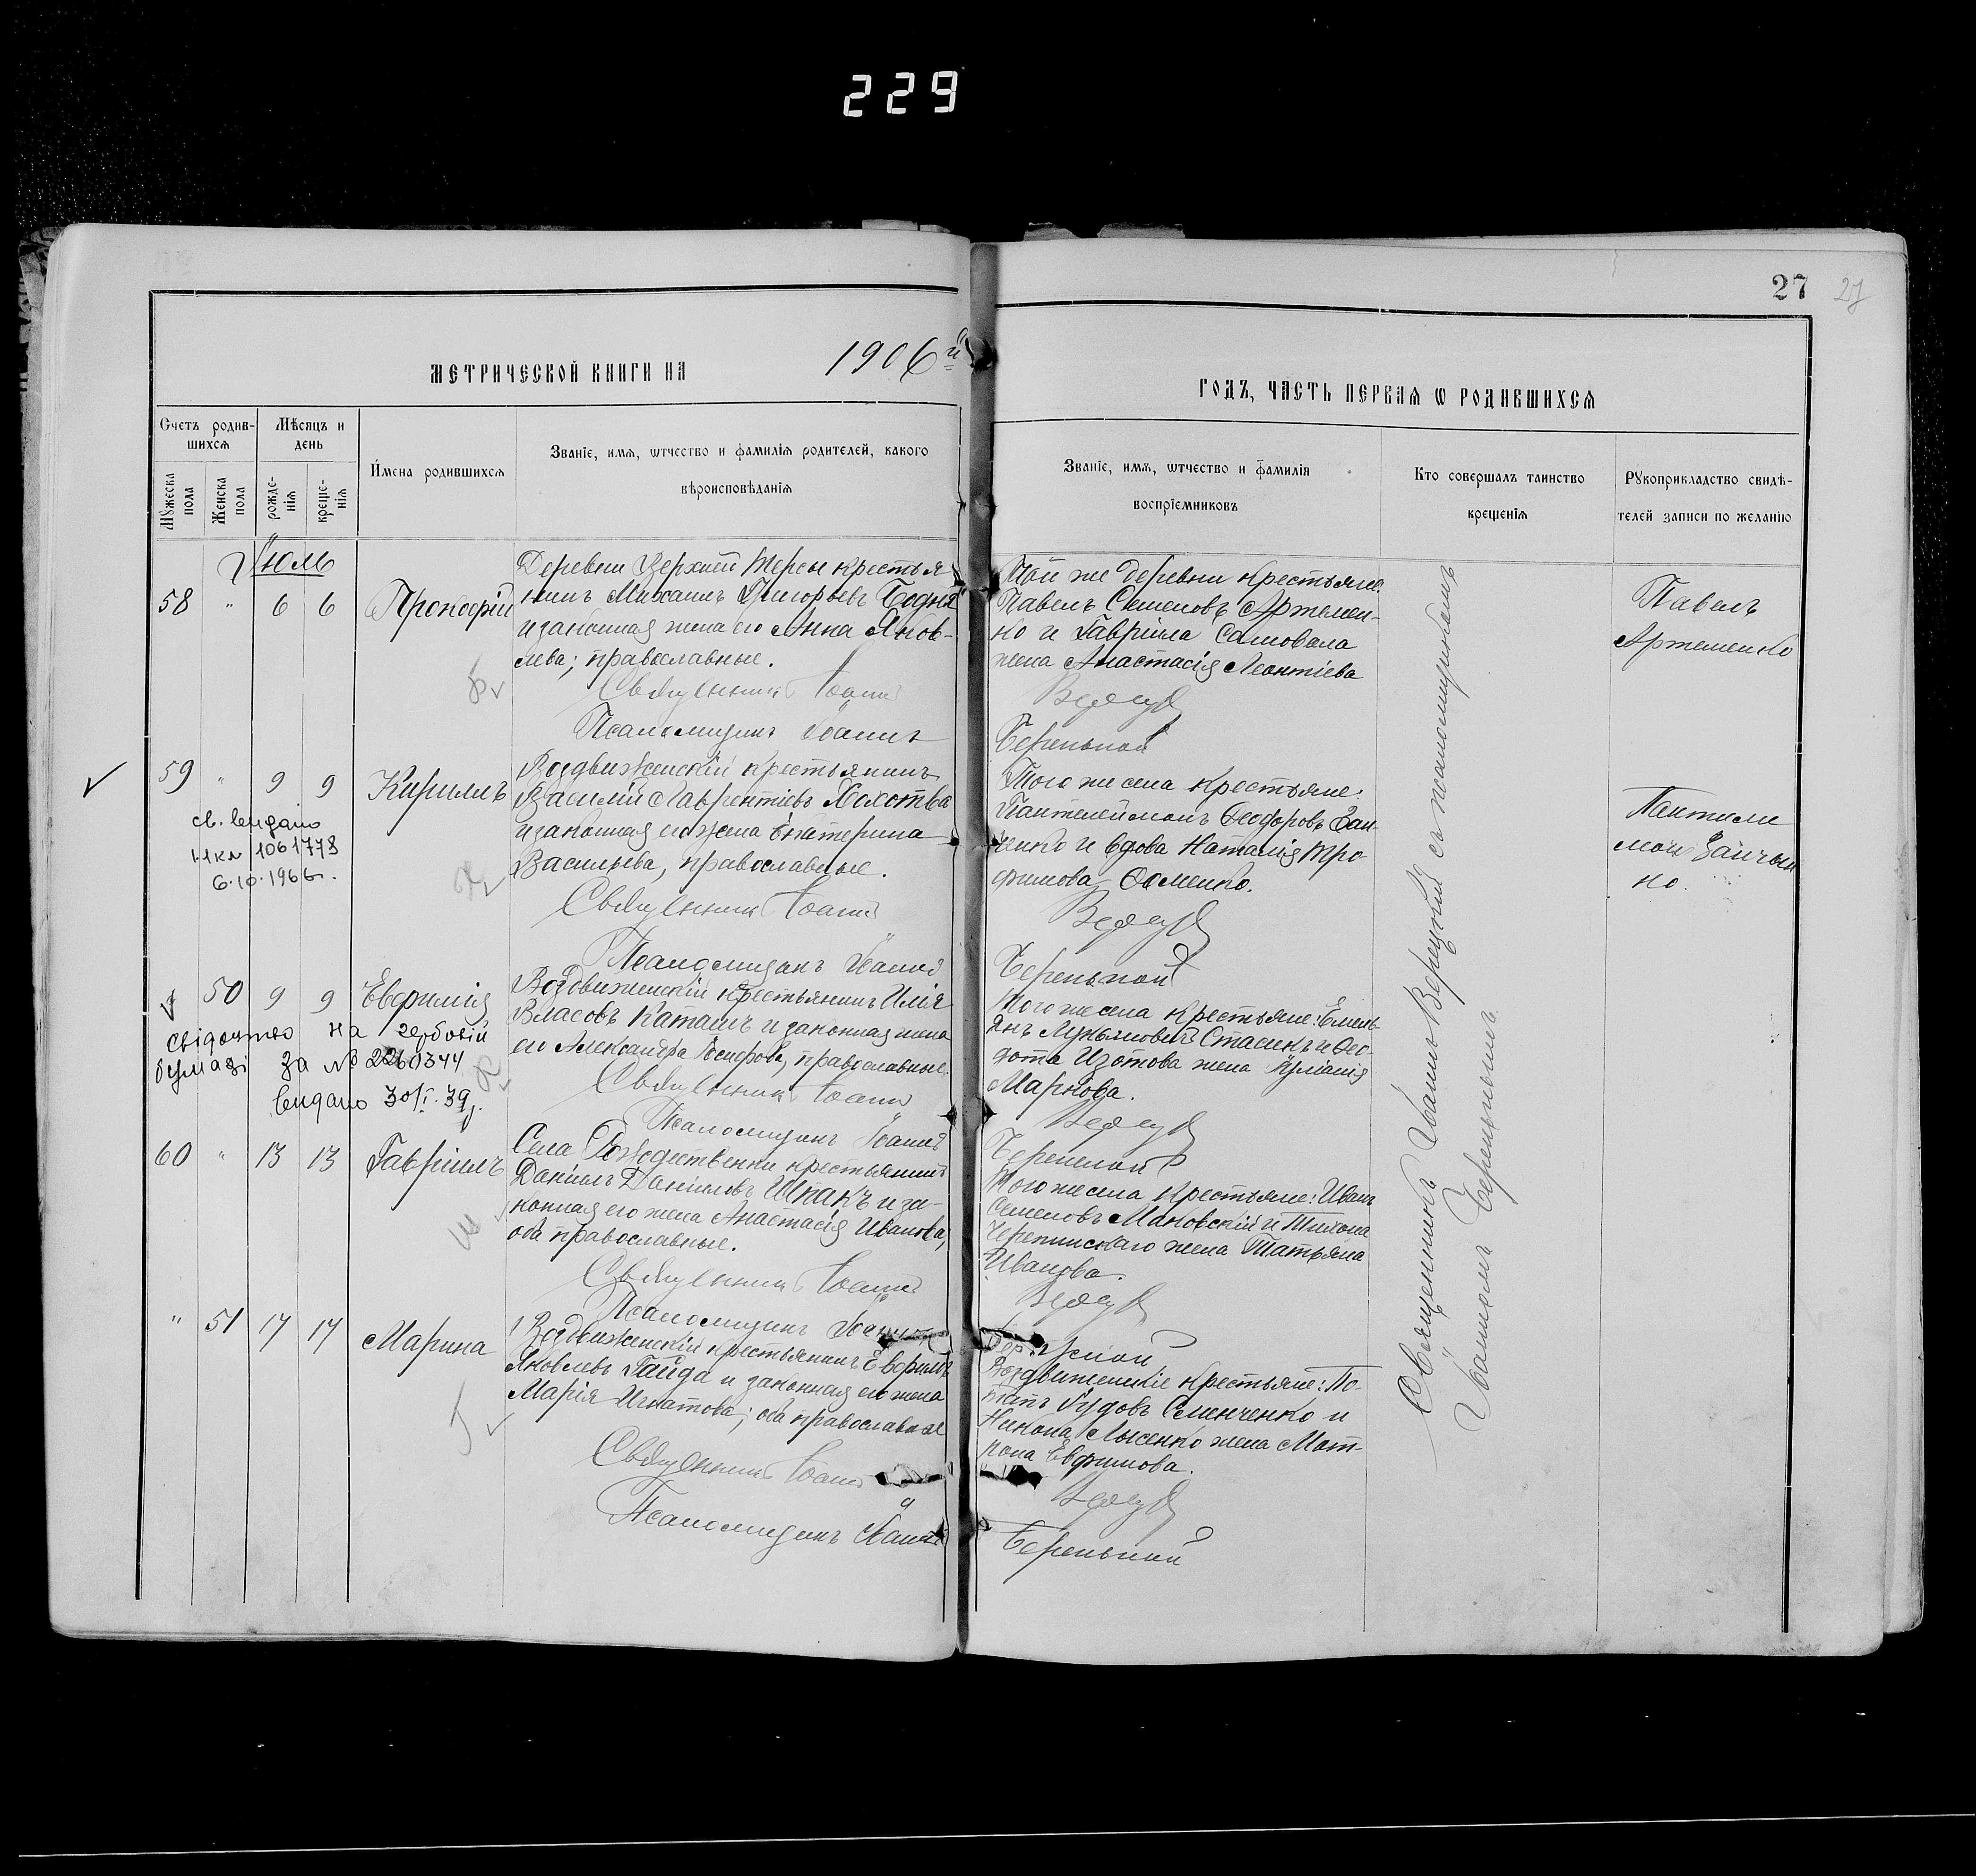 229
27 27
МЕТРИЧЕСКОЙ КНИГИ НА 1906й
ГОДЪ, ЧАСТЬ ПЕРВАЯ Ѡ РОДИВШИХСЯ
Счетъ родив-
шихся
Мужеска пола
Женска пола
Мѣсяцъ и
день
рожде-
нія
креще-
нія
Имена родившихся
Званіе, имя, ѿтчество и фамилія родителей, какого
вѣроисповѣданія
Званіе, имя, ѿтчество и фамилія
воспріемниковъ
Кто совершалъ таинство
крещенія
Рукоприкладство свидѣ-
телей записи по желанію
Іюль
58 " 6 6 Прокофій
Деревни Верхней Терсы крестья
нинъ Михаилъ Григорьевъ Бодня
и законная жена его Анна Яков-
лева; православные.
Священникъ Іоаннъ
Псаломщикъ Іоаннъ
Той же деревни крестьяне:
Павелъ Семеновъ Артемен-
ко и Гавріила Самовала
жена Анастасія Леонтіева
Верецкій
Черепьной
Павелъ
Артеменко
Б
59 " 9 9 Кириллъ
св. видано
1061778
6.10.1966г.
Воздвиженскій крестьянинъ
Василій Лаврентіевъ
и законная его жена Екатерина
Васильева, православные.
Священникъ Іоаннъ
Псаломщикъ Іоаннъ
Того же села крестьяне:
Пантелеймонъ Ѳеодоровъ Заи-
ченко и вдова Наталія Тро-
фимова
Верецкій
Черепьной
Пантеле
монъ
но.
50 9 9 Евфимія
свідоцтво на гербовій
бумазі за № 2260344
видано 30/I.39р.
Воздвиженскій крестьянинъ Илія
Власовъ Каташъ и законная жена
его Александра Іосифова, православные.
Священникъ Іоаннъ
Псаломщикъ Іоаннъ
Того же села крестьяне: Емель-
янъ Лукьяновичъ Стасикъ и Ѳео-
дота Изотова жена Іуліанія
Маркова.
Верецкій
Черепьной
60 " 13 13 Гавріилъ
Села Рождественки крестьянинъ
Даніилъ Даніиловъ Шпакъ и за-
конная его жена Анастасія Иванова,
оба православные.
Священникъ Іоаннъ
Псаломщикъ Іоаннъ
Того же села крестьяне: Иванъ
Семеновъ Маковскій и Тихона
Черепинскаго жена Татьяна
Иванова.
Верецкій
Ш
" 51 17 17 Марина
Воздвиженскій крестьянинъ Евфимъ
Яковлевъ Гайда и законная его жена
Марія Игнатова; оба православные
Священникъ Іоаннъ
Псаломщикъ Іоаннъ
Воздвиженскіе крестьяне: По-
тапъ Гудовъ Семенченко и
Никона Лысенко жена Мат-
рона Евфимова.
Верецкій
Черепьной
Г
Священникъ Іоаннъ Верецкій съ псаломщикомъ
Іоанномъ Черепьнымъ